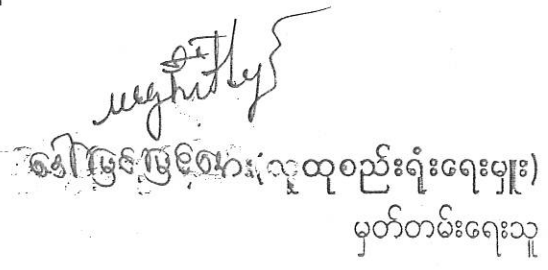 ဒေါ်မြင့်မြင့်အေး(လူထုစည်းရုံးရေးမှူး)
မှတ်တမ်းရေးသူ